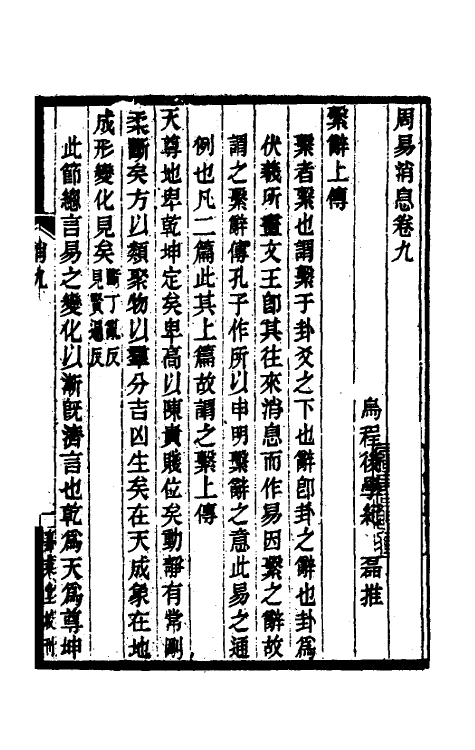 周易消息卷九
烏程後學紀 磊推
繫辭上傳
繫者繫也謂繫于卦爻之下也辭卽卦之辭也卦爲
伏羲所畫文王卽其往來消息而作易因繫之辭故
謂之繫辭傳孔子作所以申明繫辭之意此易之通
例也凡二篇此其上篇故謂之繫上傳
天尊地卑乾坤定矣卑高以陳貴賤位矣動靜有常剛
柔斷矣方以類聚物以羣分吉凶生矣在天成象在地
成形變化見矣斷丁亂反見賢遍反
此節總言易之變化以漸旣濟言也乾爲天爲尊坤
消九
嘉業堂校刊